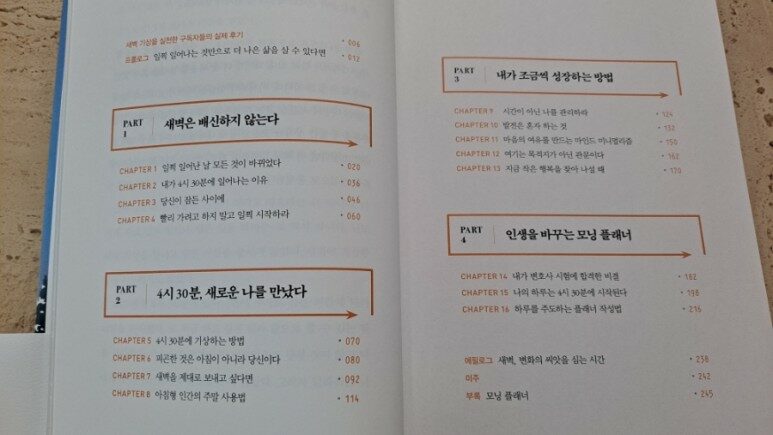 새벽 기상을 실천한 구독자들의 실제 후기 • 006
프롤로그 일찍 일어나는 것만으로 더 나은 삶을 살 수 있다면 • 012
PART 1 새벽은 배신하지 않는다
CHAPTER 1 일찍 일어난 날 모든 것이 바뀌었다 • 020
CHAPTER 2 내가 4시 30분에 일어나는 이유 • 036
CHAPTER 3 당신이 잠든 사이에 • 046
CHAPTER 4 빨리 가려고 하지 말고 일찍 시작하라 • 060
PART 2 4시 30분, 새로운 나를 만났다
CHAPTER 5 4시 30분에 기상하는 방법 • 070
CHAPTER 6 피곤한 것은 아침이 아니라 당신이다 • 080
CHAPTER 7 새벽을 제대로 보내고 싶다면 • 092
CHAPTER 8 아침형 인간의 주말 사용법 • 114
PART 3 내가 조금씩 성장하는 방법
CHAPTER 9 시간이 아닌 나를 관리하라 • 124
CHAPTER 10 발전은 혼자 하는 것 • 132
CHAPTER 11 마음의 여유를 만드는 마인드 미니멀리즘 • 150
CHAPTER 12 여기는 목적지가 아닌 관문이다 • 162
CHAPTER 13 지금 작은 행복을 찾아 나설 때 • 170
PART 4 인생을 바꾸는 모닝 플래너
CHAPTER 14 내가 변호사 시험에 합격한 비결 • 182
CHAPTER 15 나의 하루는 4시 30분에 시작된다 • 198
CHAPTER 16 하루를 주도하는 플래너 작성법 • 216
에필로그 새벽, 변화의 씨앗을 심는 시간 • 238
미주 • 242
부록 모닝 플래너 • 245